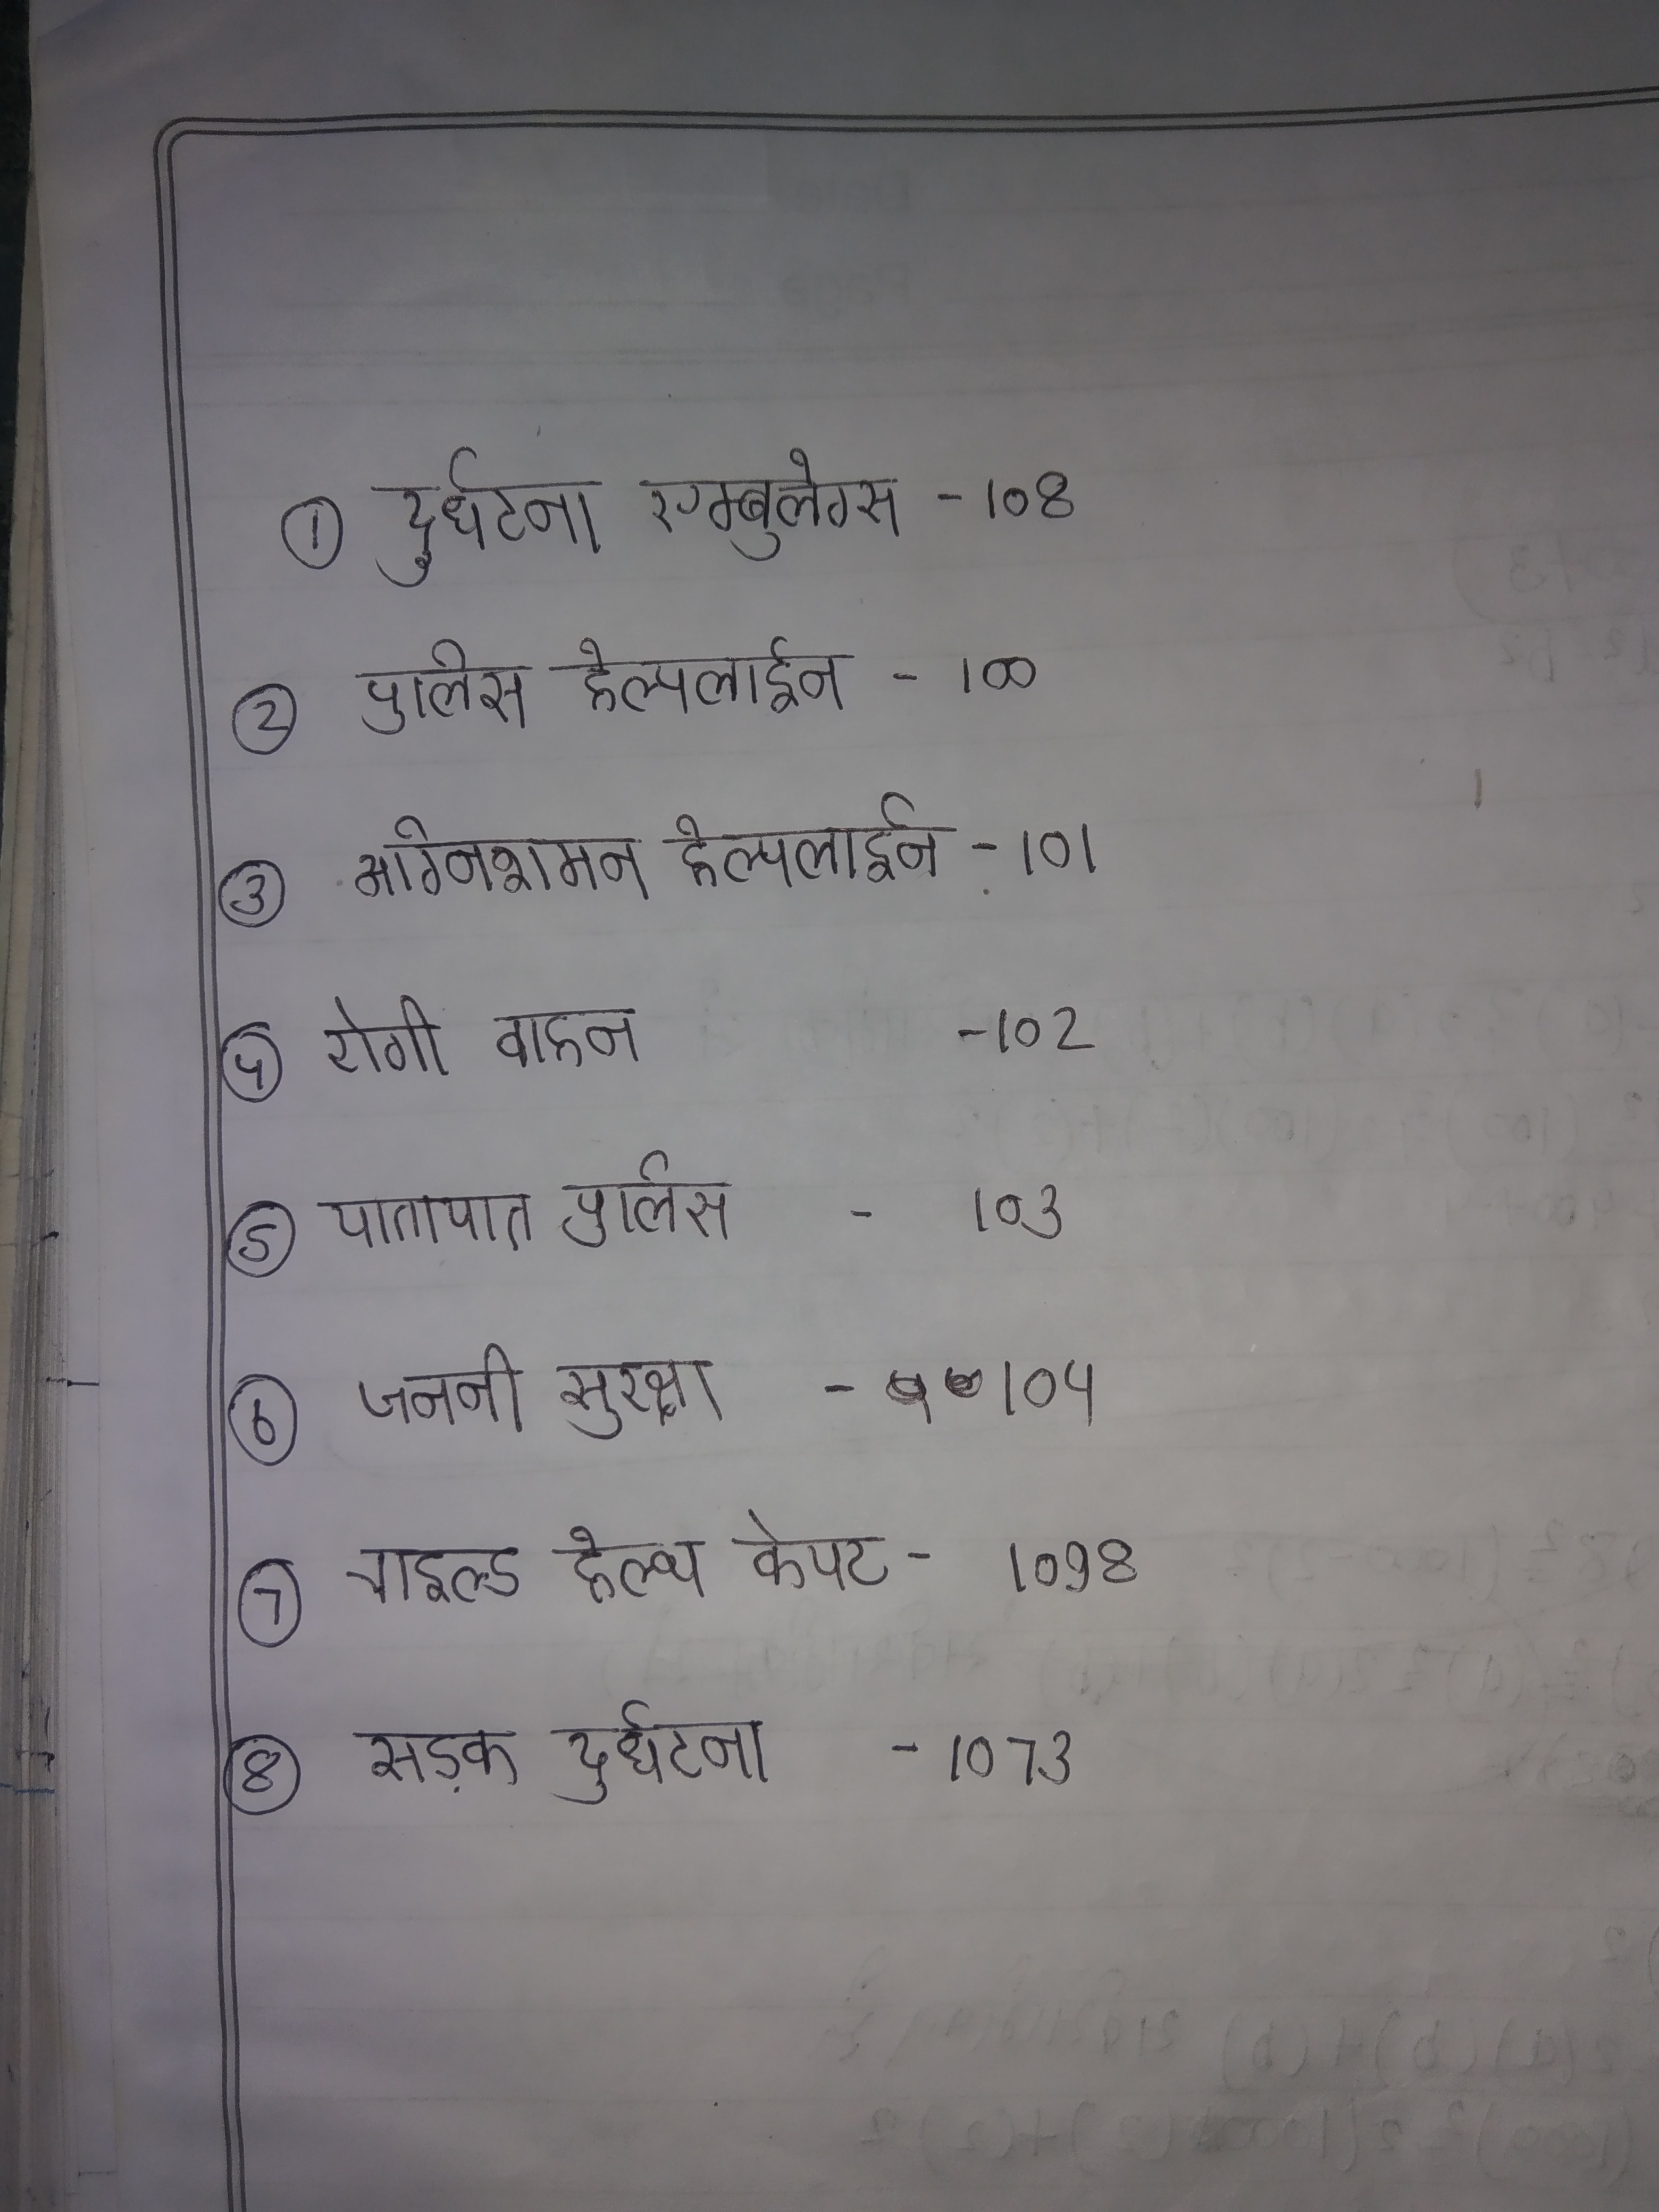 ① दुर्घटना एम्बुलेन्स - 108
② पुलिस हेल्पलाईन - 100
③ अग्निशमन हेल्पलाईन - 101
④ रोगी वाहन - 102
⑤ यातायात पुलिस - 103
⑥ जननी सुरक्षा - 104
⑦ चाइल्ड हेल्थ केयट - 1098
⑧ सड़क दुर्घटना - 1073